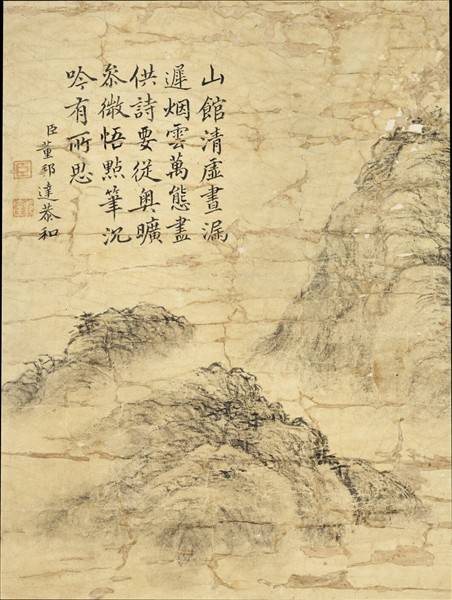 山館清虛晝漏
遲烟雲萬態盡
供詩要從奧曠
叅微悟點筆沉
吟有所思
臣董邦達恭和